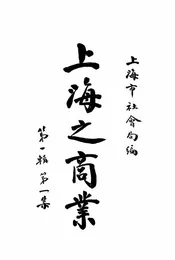 上海市社會局編
上海之商業
第一輯第一集